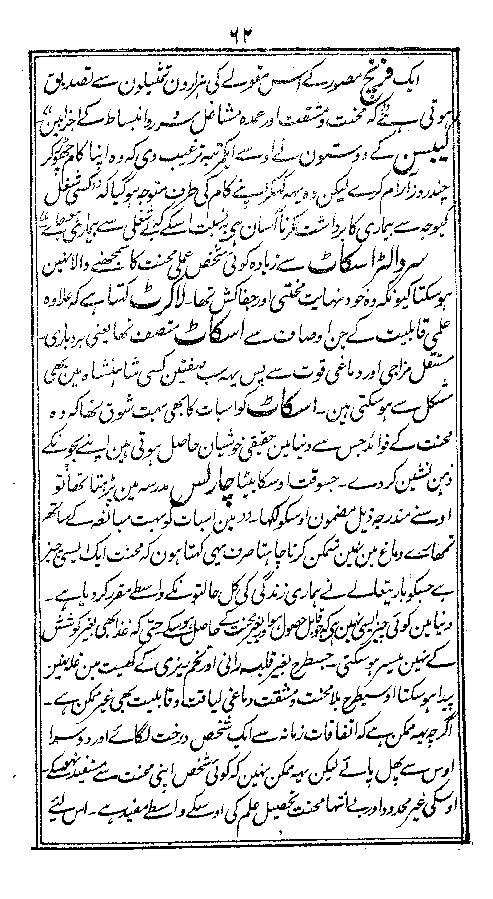 ۶۲
ایک فرنچ مصور کے اس مقولے کی ہزارون تمثیلون سے تصدیق
ہوتی ہے کہ محنت و مشقت اور عمدہ مشاغل سرور و انبساط کے اجزا ہین
کے دوستون نے اوسے اکثر ترغیب دی کہ وہ اپنا کام چھوڑ کر
چند روز آرام کرے لیکن وہ یہہ کہکر اپنے کام کی طرف متوجہ ہو گیا کہ کسی شغل
کیوجہ سے بیماری کا برداشت کرنا آسان ہے بہ نسبت اسکے کہ بے شغلی سے بیماری
سر والٹر اسکاٹ سے زیادہ کوئی شخص عملی محنت کا سمجھنے والا نہین
ہوسکتا کیونکہ وہ خود نہایت محنتی اور جفاکش تھا۔ لاکرٹ کہتا ہے کہ علاوہ
علمی قابلیت کے جن اوصاف سے اسکاٹ متصف تھا یعنی بردباری۔
مستقل مزاجی اور دماغی قوت سے پس یہہ سب صفتین کسی شاہنشاہ مین بھی
مشکل سے ہو سکتی ہین۔ اسکاٹ کو اسبات کا بھی بہت شوق تھا کہ وہ
محنت کے فوائد جس سے دنیا مین حقیقی خوشیان حاصل ہوتی ہین اپنے بچونکے
ذہن نشین کر دے۔ جسوقت اوسکا بیٹا چارلس مدرسہ مین پڑہتا تھا تو
اوسنے مندرجہ ذیل مضمون اوسکو لکھا۔ مین اسبات کو بہت مبالغہ کے ساتھ
تمھارے دماغ مین نہین متمکن کرنا چاہتا صرف یہی کہتا ہون کہ محنت ایک ایسی چیز
ہے جسکو باریتعالے نے ہماری زندگی کی کل حالتونکے واسطے مقرر کر دیا ہے۔
دنیا مین کوئی چیز ایسی نہین ہے کہ جو قابل حصول ہو اور بغیر محنت کے حاصل ہو سکے حتی کہ غذا بھی بغیر کوشش
کے نہین میسر ہو سکتی۔ جسطرح بغیر قلبہ رانی اور تخم ریزی کے کھیت مین غلہ نہین
پیدا ہو سکتا اوسیطرح بلا محنت و مشقت دماغی لیاقت و قابلیت بھی غیر ممکن ہے۔
اگرچہ یہہ ممکن ہے کہ اتفاقات زمانہ سے ایک شخص درخت لگائے اور دوسرا
اوس سے پھل پائے لیکن یہہ ممکن نہین کہ کوئی شخص اپنی محنت سے مستفید نہو سکے
اوسکی غیر محدود اور بے انتہا محنت تحصیل علم کی اوسکے واسطے مفید ہے۔ اس لئے